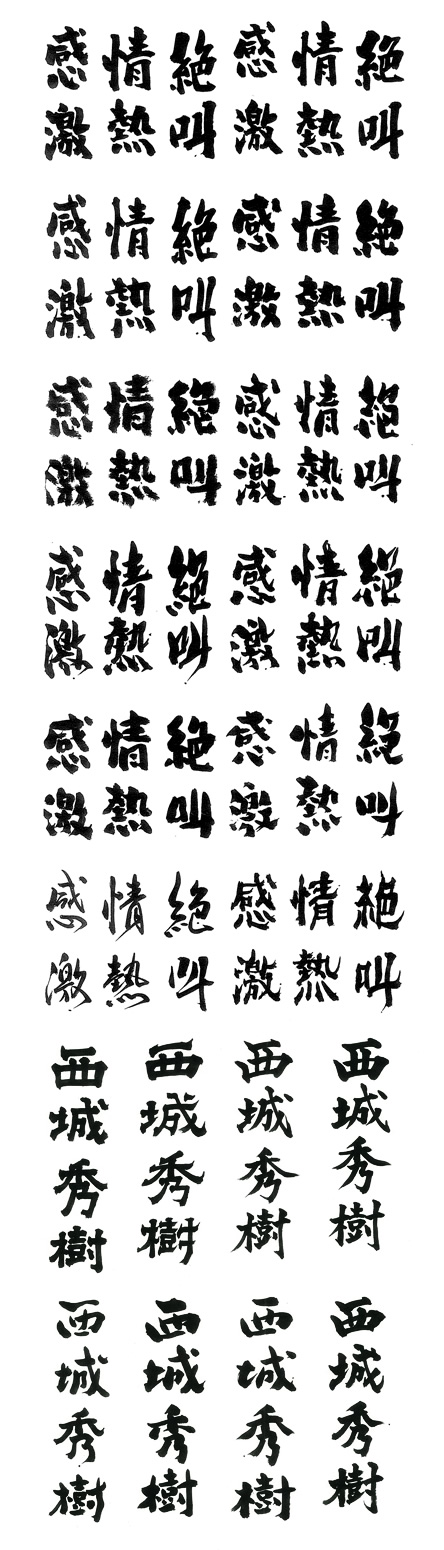 絶叫
情熱
感激
絶叫
情熱
感激
絶叫
情熱
感激
絶叫
情熱
感激
絶叫
情熱
感激
絶叫
情熱
感激
絶叫
情熱
感激
絶叫
情熱
感激
絶叫
情熱
感激
絶叫
情熱
感激
絶叫
情熱
感激
絶叫
情熱
感激
西城秀樹
西城秀樹
西城秀樹
西城秀樹
西城秀樹
西城秀樹
西城秀樹
西城秀樹